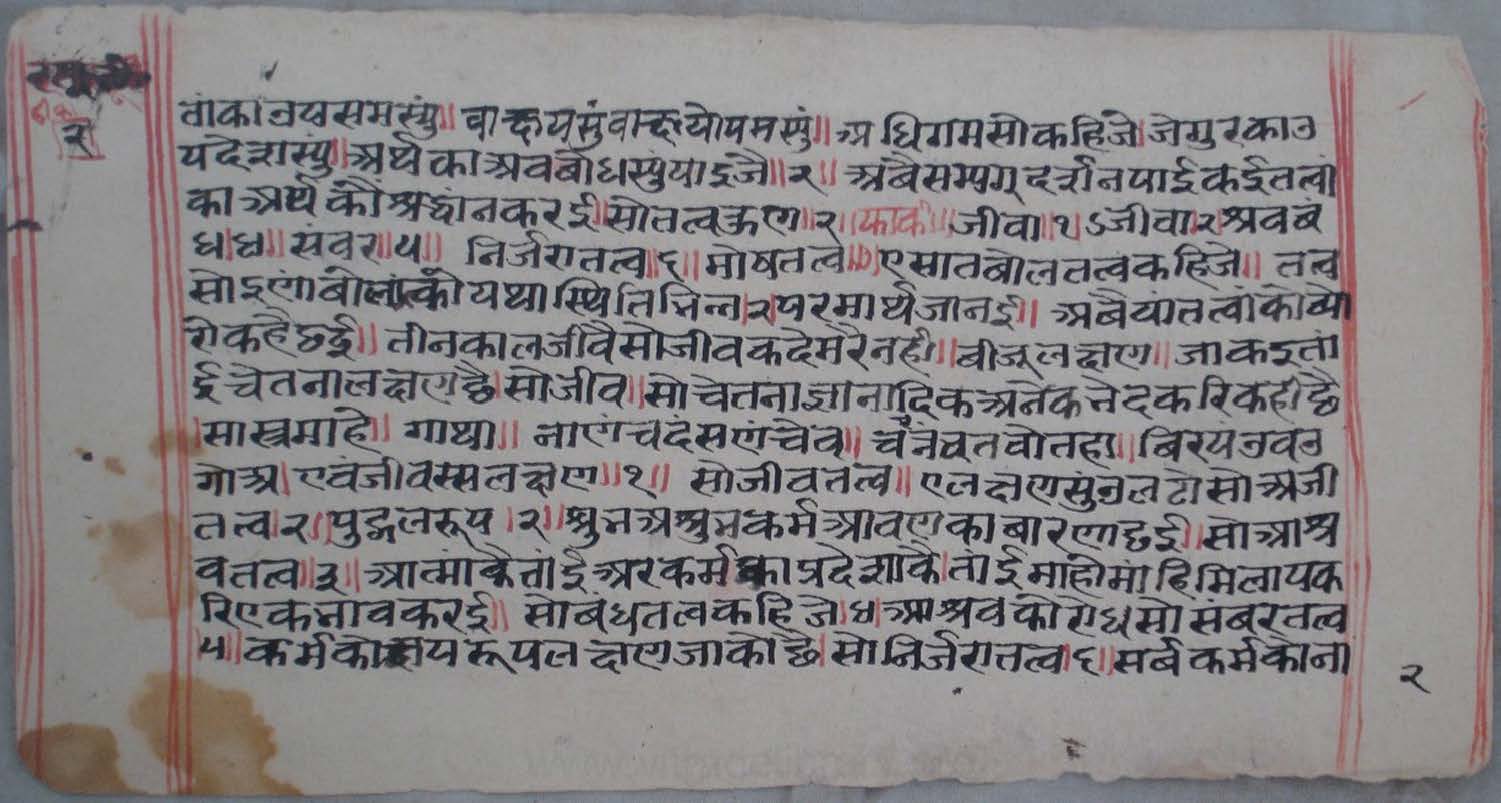 २
तांका उपसमस्युं॥ वा क्षयसुं वा क्षयोपमस्युं॥ अधिगम सो कहिजे। जे गुर का उ
पदेशस्युं। अर्थ का अवबोधस्युं पाइजै॥२॥ अबै सम्यग्दर्शन पाई कई तत्वां
का अर्थ कौ श्रद्धांन करई। सो तत्व कुण॥२॥ जीवा॥१ऽजीवा२।श्रव बं
ध।४॥ संवर॥५॥ निर्जरा तत्व॥६॥ मोष तत्व॥७॥ ए सात बोल तत्व कहिजे॥ तत्व
सो इणां बोलांको यथा स्थिति भिन्न२ परमार्थ जानई॥ अबै यां तत्वां को व्यौ
रो कहै छई॥ तीन काल जीवै सो जीव कदे मरै नही॥ बीजू लक्षण॥ जा कइ तां
ई चेतना लक्षण छै। सो जीव॥ सो चेतना ज्ञानादिक अनेक भेद करि कही छै
सास्त्र माहे॥ गाथा॥ नाणं च दंसणं चेव॥ तवो तहा॥ विरयं उवउ
गो अ। एवं जीवस्स लक्षण॥१॥ सो जीव तत्व॥ ए लक्षण सुं उलटो सो अजी
तत्व।२॥ पुद्गल रूप।२॥ शुभ अशुभ कर्म आवण का बारणा छई॥ सो आश्र
व तत्व॥३॥ आत्मां कै तांई अर कर्म का प्रदेशा कै। तांई माहो मांहि मिलाय क
रि एक भाव करई॥ सो बंध तत्व कहिजे।४। आश्रव को रोध सो संबर तत्व
५॥ कर्म को क्षय रूप लक्षण जाको छै। सो निर्जरा तत्व।६॥ सर्ब कर्म को ना
२